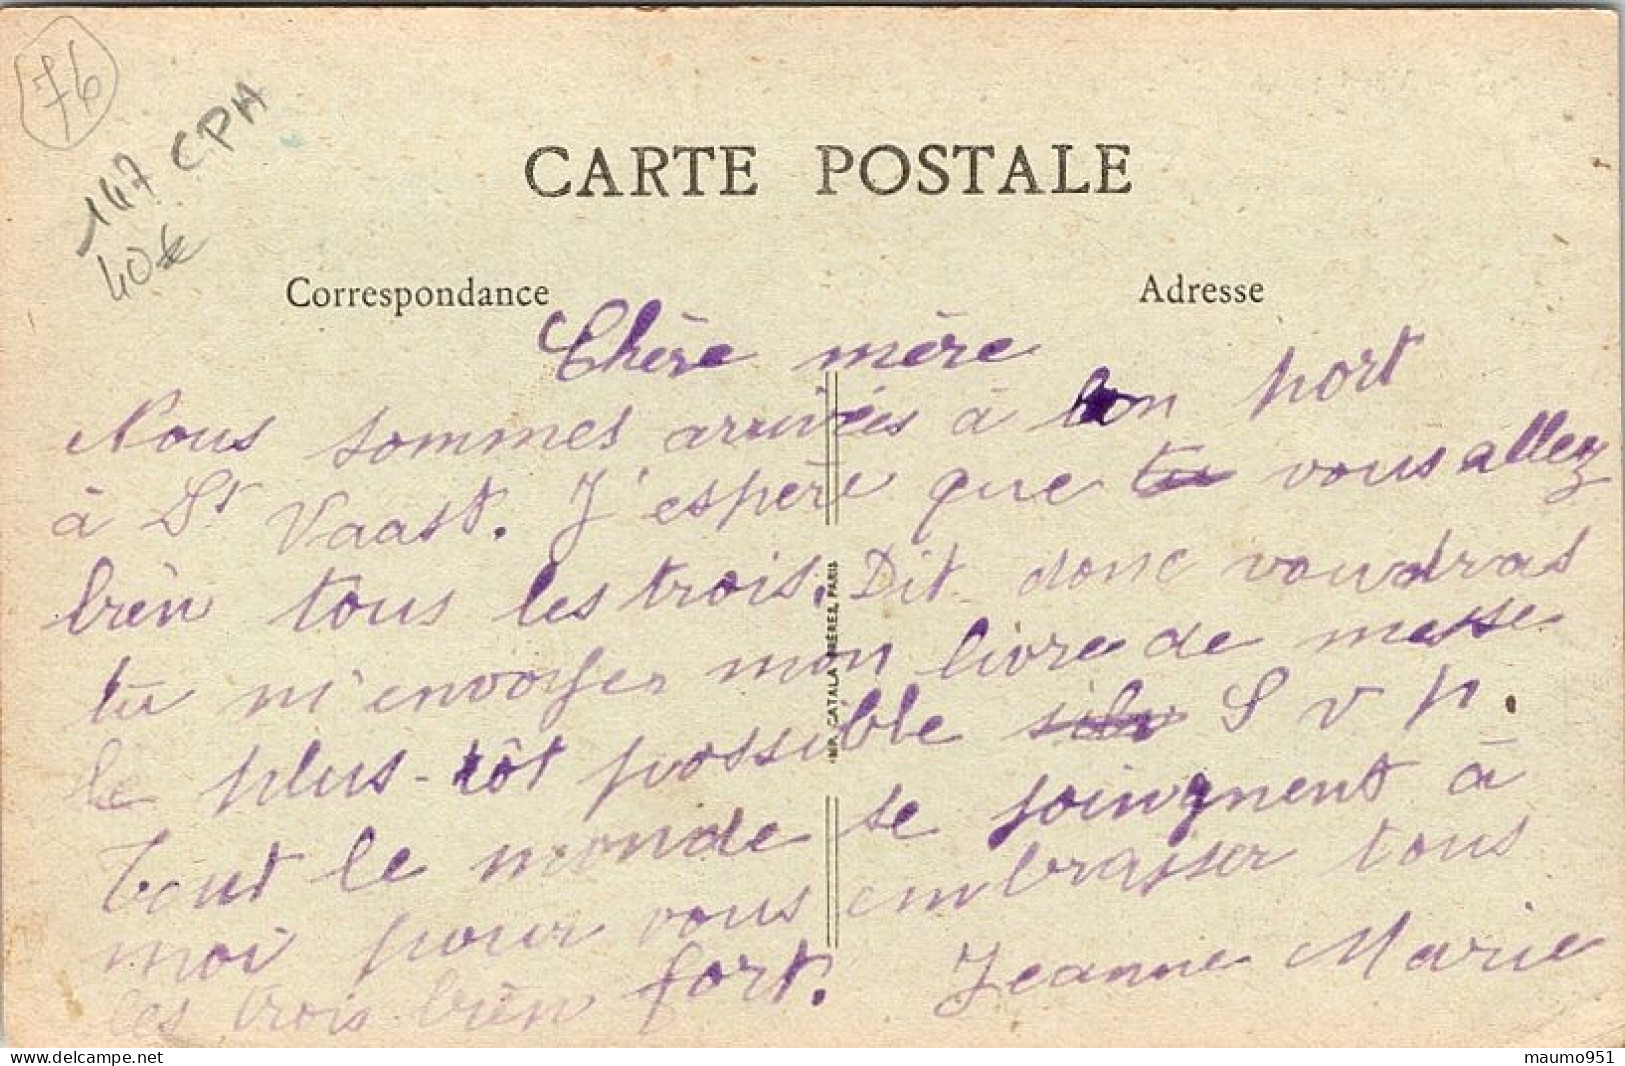 76
147 CPA
40€
CARTE POSTALE
Correspondance
Adresse
Chère mère
Nous sommes arrivées à bon port
à St Vaast. J'espère que tu vous allez
bien tous les trois. Dit donc voudras
tu m'envoyer mon livre de messe
le plus-tôt possible S v p.
Tout le monde se joingnent à
moi pour vous embrasser tous
les trois bien fort. Jeanne Marie
IMP. CATALA FRÈRES, PARIS
delcampe.net
maumo951